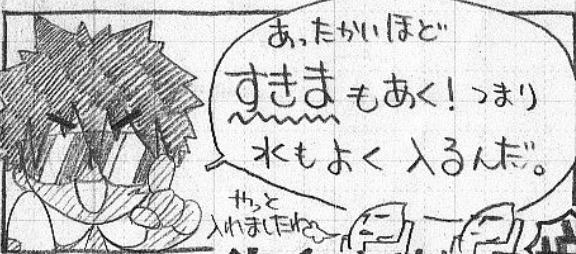 あったかいほど
すきまもあく!つまり
水もよく入るんだ。
やっと
入れましたね